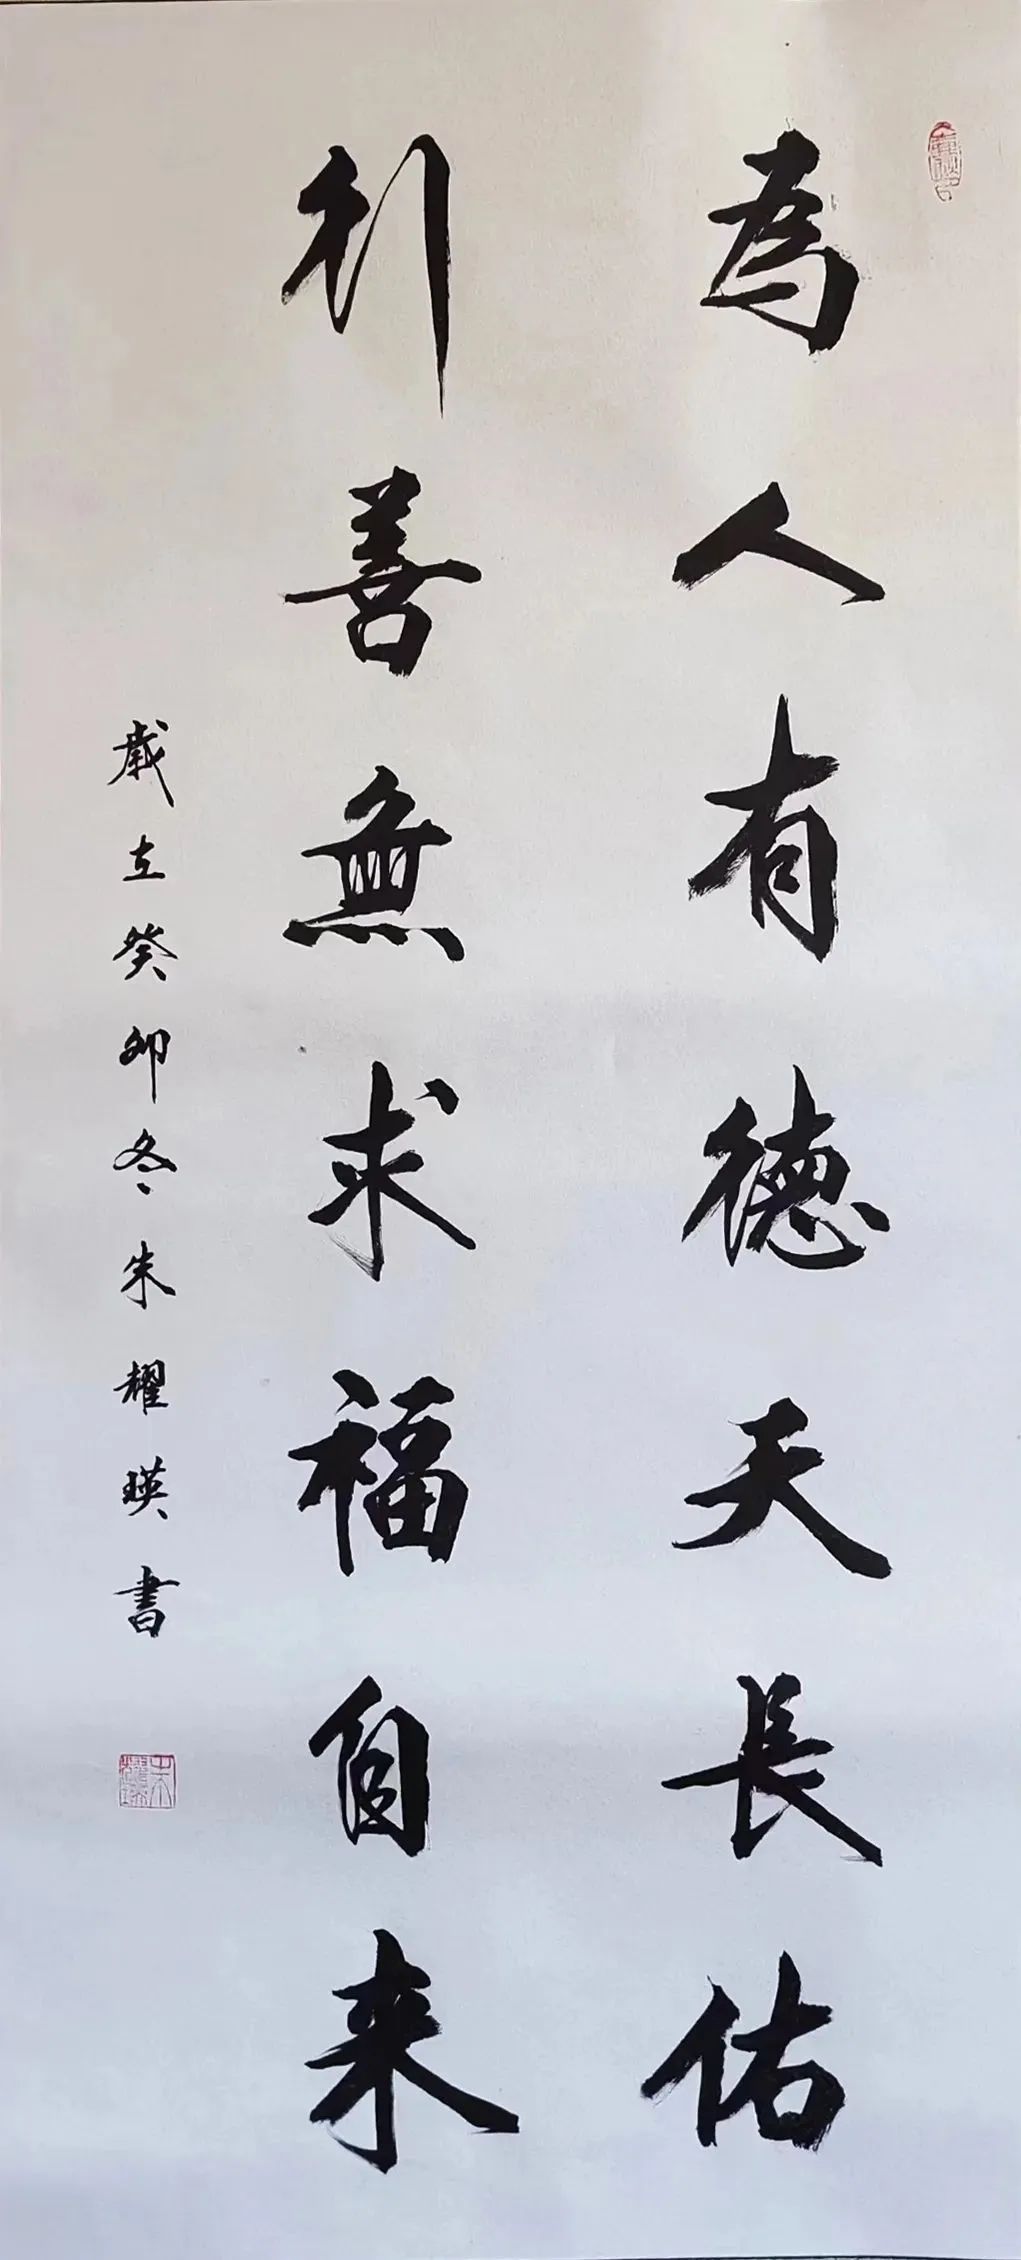 為人有德天長佑
行善無求福自来
歲在癸卯冬朱耀瑛書